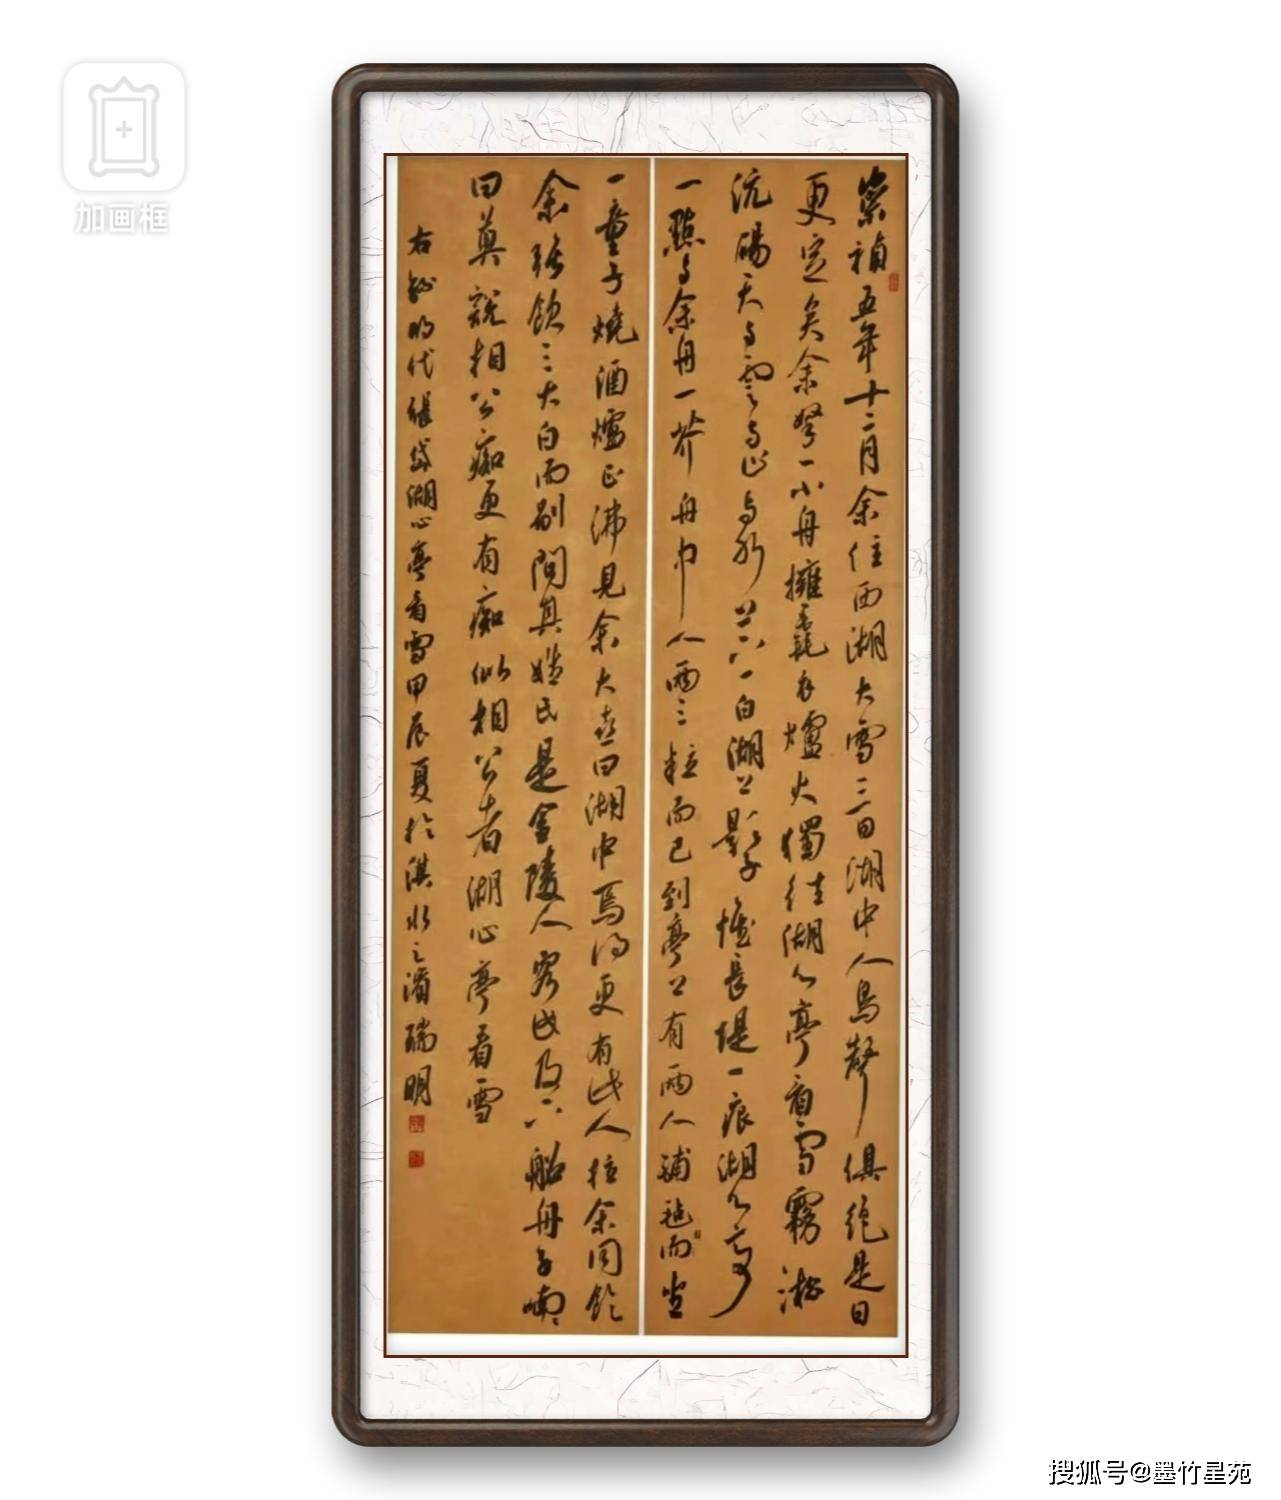 崇禎五年十二月余住西湖大雪三日湖中人鳥聲俱絕是日
更定矣余拏一小舟擁毳衣爐火獨往湖心亭看雪霧凇
沆碭天與雲與山與水上下一白湖上影子惟長堤一痕湖心亭
一點與余舟一芥舟中人兩三粒而已到亭上有兩人鋪氈而坐
一童子燒酒爐正沸見余大喜曰湖中焉得更有此人拉余同飲
余強飲三大白而別問其姓氏是金陵人客此及下船舟子喃喃
曰莫說相公痴更有痴似相公者湖心亭看雪
右錄明代張岱湖心亭看雪甲辰夏於淇水之濱瑞明
加画框
搜狐号@墨竹星苑